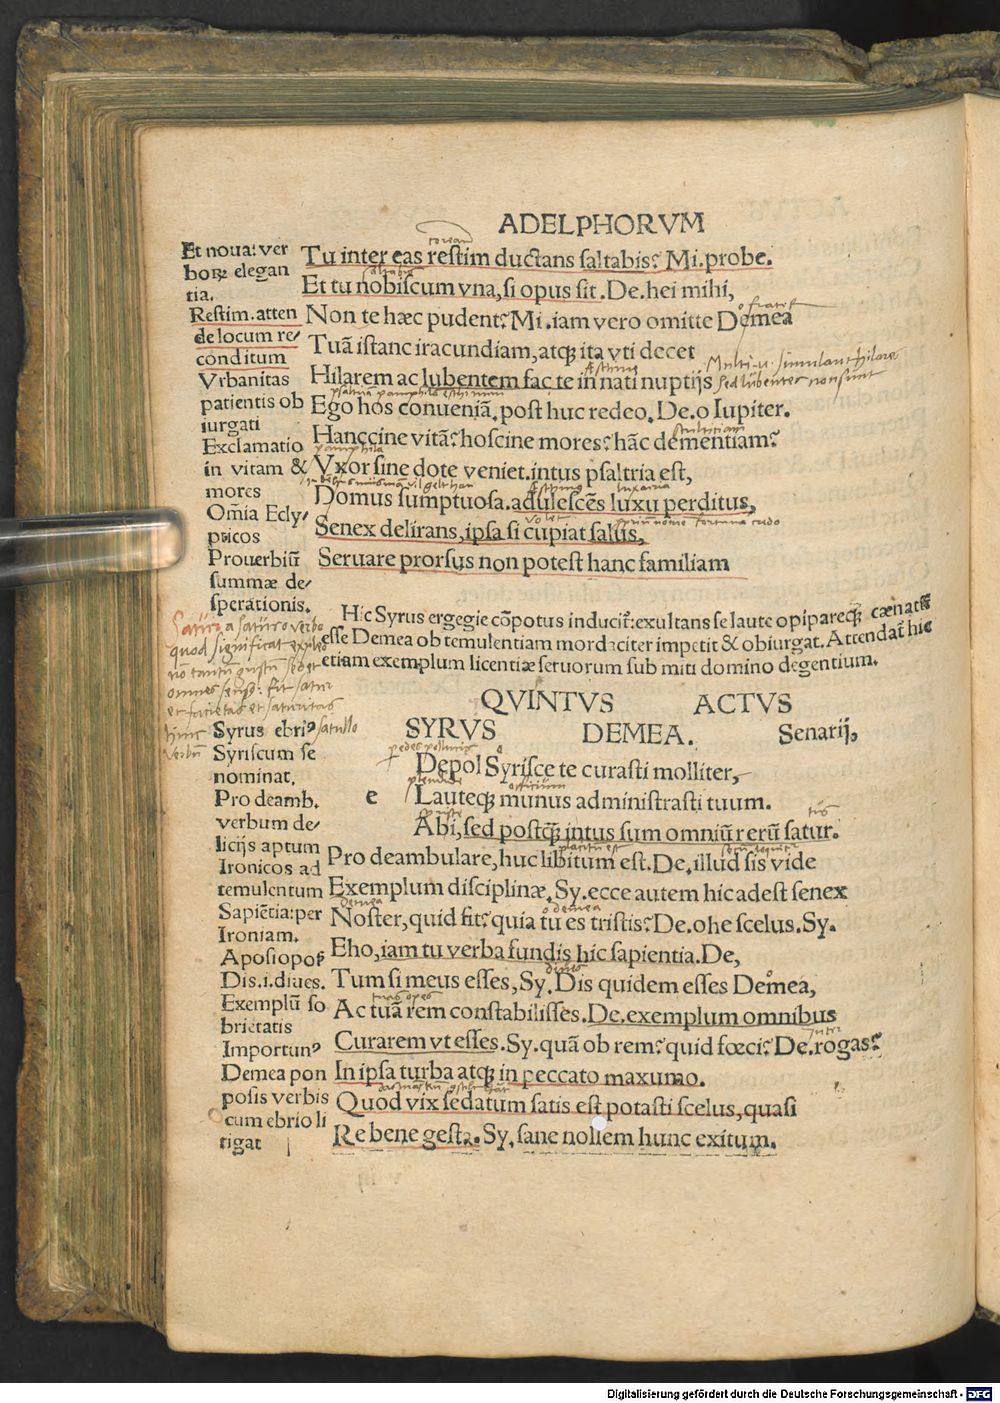 ADELPHORVM
Et noua: ver
boꝝ elegan
tia.
Restim. atten
de locum re/
conditum
Vrbanitas
patientis ob
iurgati
Exclamatio
in vitam &
mores
Om̄ia Ecly/
pticos
Prouerbiū
summæ de/
sperationis.
Tu inter eas restim ductans saltabis? Mi. probe.
saltabis
Et tu nobiscum vna, si opus sit. De. hei mihi,
o frater
Non te hæc pudent? Mi. iam vero omitte Demea
Tuā istanc iracundiam, atqꝫ ita vti decet
Multi simulant hilare
Hilarem ac lubentem fac te in nati nuptijs
sed lubentes non sunt
Ego hos conueniā. post huc redeo. De. o Iupiter.
stultitiam
Hanccine vitā? hoscine mores? hāc dementiam?
pamphila
Vxor sine dote veniet. intus psaltria est,
Aeschinus luxuria
Domus sumptuosa. adulescēs luxu perditus,
Senex delirans, ipsa si cupiat salus,
Seruare prorsus non potest hanc familiam
Hic Syrus ergegie cōpotus inducit̄: exultans se laute opipareqꝫ cænatū
esse Demea ob temulentiam mordaciter impetit & obiurgat. Attendat̄ hic
etiam exemplum licentiæ seruorum sub miti domino degentium.
Satur a saturo verbo
quod significat expleo
omnes sensus: fit satur
et facietas et saturitas
hinc satullo
verbū
QVINTVS ACTVS
SYRVS DEMEA. Senarij,
Syrus ebriꝰ
Syriscum se
nominat.
Pro deamb.
verbum de/
licijs aptum
Ironicos ad
temulentum
Sapiētia: per
Ironiam.
Aposiopoẜ
Dis. i. diues.
Exemplū so
brietatis
Importunꝰ
Demea pon
posis verbis
cum ebrio li
tigat
e
Depol Syrisce te curasti molliter,
officium
Lauteqꝫ munus administrasti tuum.
Abi, sed postqꝫ̄ intus sum omniū rerū satur.
Pro deambulare, huc libitum est. De. illud sis vide
Exemplum disciplinæ. Sy. ecce autem hic adest senex
demea o demea
Noster, quid fit? quia tu es tristis? De. ohe scelus. Sy.
Eho, iam tu verba fundis hic sapientia. De,
diues
Tum si meus esses, Sy. Dis quidem esses Demea,
tuas opes
Ac tuā rem constabilisses. De. exemplum omnibus
Curarem vt esses. Sy. quā ob rem? quid fœci? De. rogas?
In ipsa turba atqꝫ in peccato maxumo.
Quod vix sedatum satis est potasti scelus, quasi
Re bene gesta. Sy. sane nollem hunc exitum.
Digitalisierung gefördert durch die Deutsche Forschungsgemeinschaft - DFG